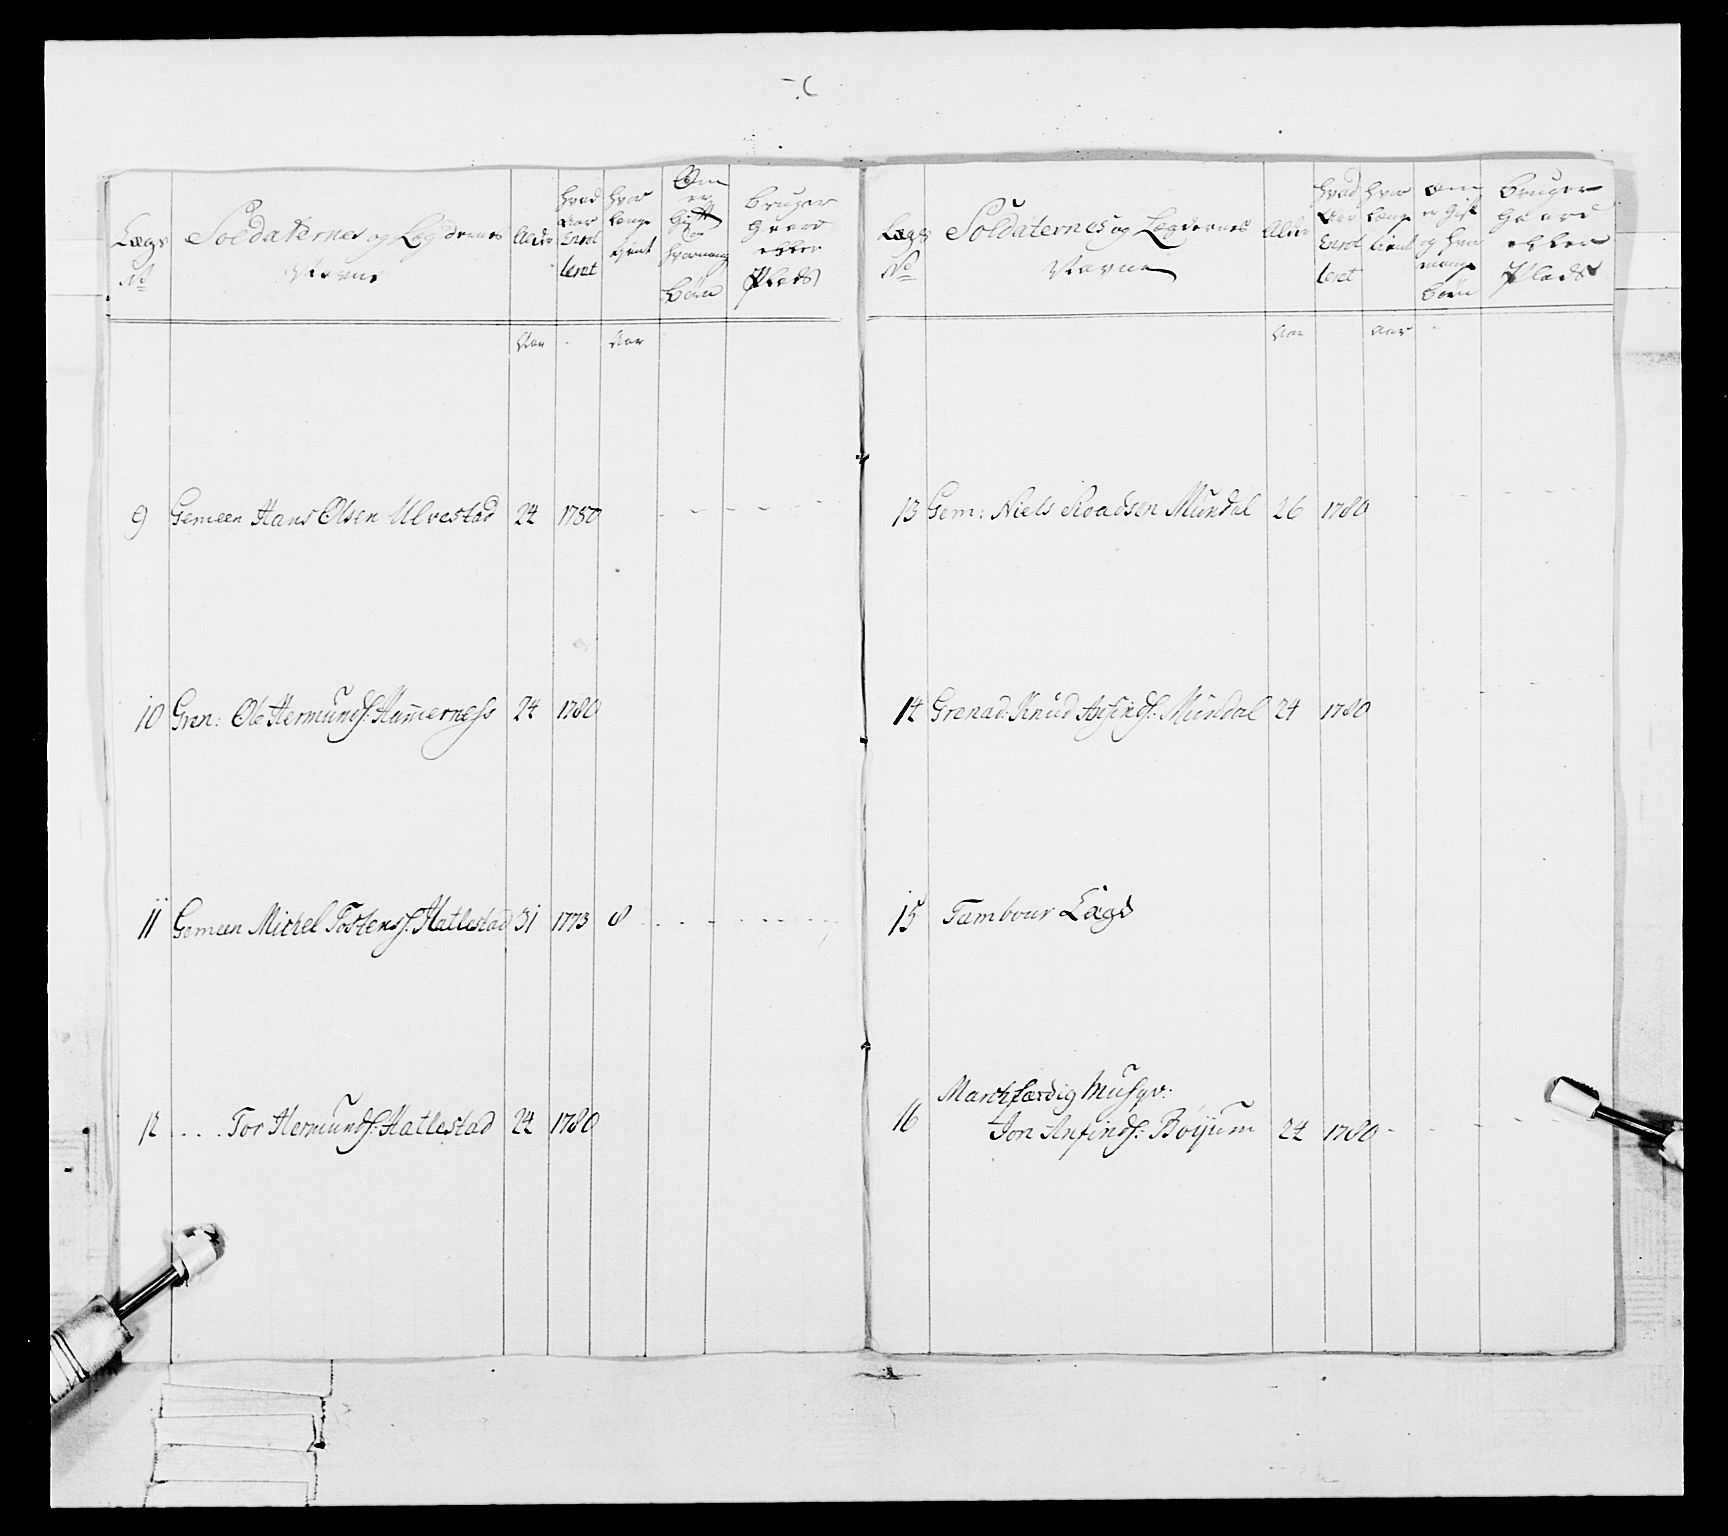 Lægs No
Soldaternes og Lægdernes Navne
Alder
hvad Aar Enrolleret
hvor længe tient
Om er Gift og hvormange Børn
bruger Gaard eller Plads
Aar
Aar
9 Gemeen Hans Olsen Ulvestad 24 1780
10 Gren: Ole Hermunds: Hamerness 24 1780
11 Gemeen Michel Tostens: Hatlestad 31 1773 8
12 .... Tor Hermunds: Hatlestad 24 1780
Lægs No
Soldaternes og Lægdernes Navne
Alder
hvad Aar Enrolleret
hvor længe tient
om er Gift og hvor mange Børn
bruger Gaard eller Plads
Aar
aar
13 Gem: Niels Roadsen Mundal 26 1780
14 Grenad: Knud Anfinds: Mundal 24 1780
15 Tambour Lægd
16 Marchfærdig Musqv:
Jon Anfinds: Bøÿum 24 1780